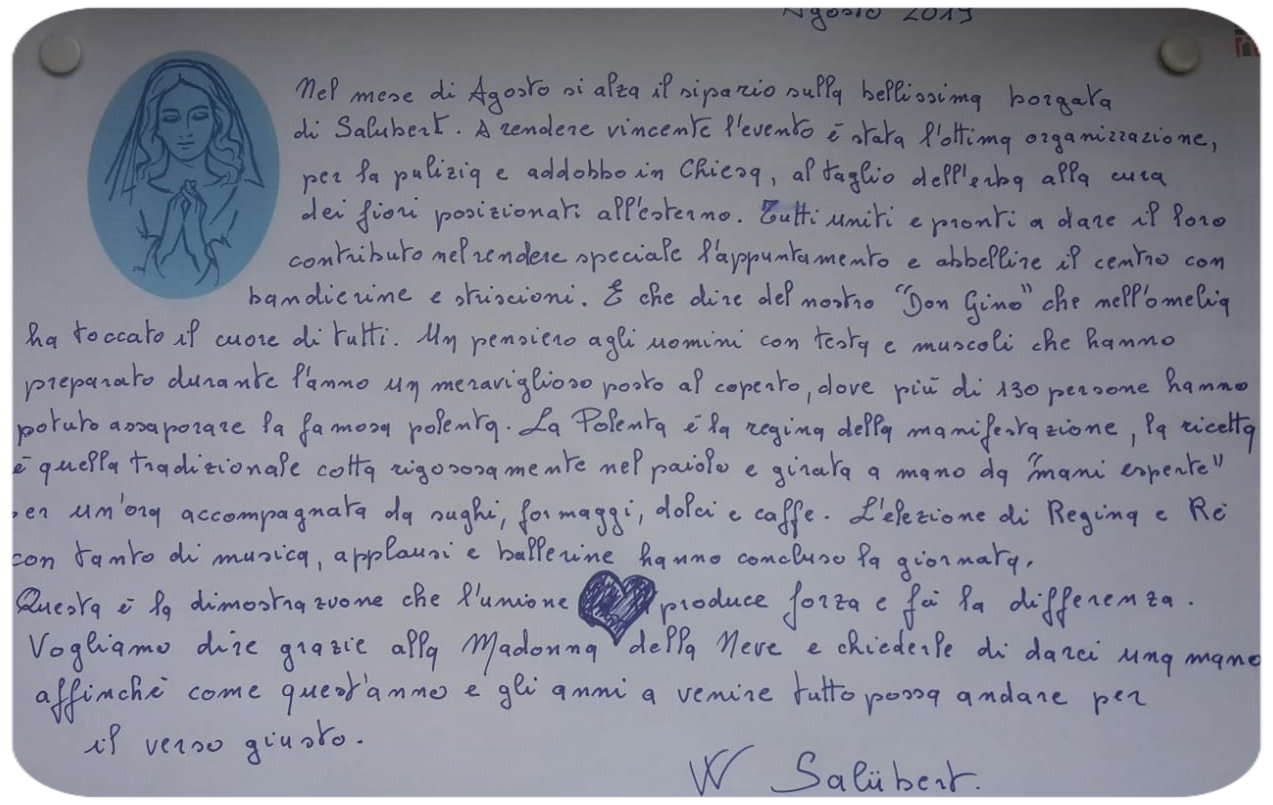 Agosto 2019
Nel mese di Agosto si alza il sipario sulla bellissima borgata
di Salubert. A rendere vincente l'evento è stata l'ottima organizzazione,
per la pulizia e addobbo in Chiesa, al taglio dell'erba alla cura
dei fiori posizionati all'esterno. Tutti uniti e pronti a dare il loro
contributo nel rendere speciale l'appuntamento e abbellire il centro con
bandierine e striscioni. E che dire del nostro "Don Gino" che nell'omelia
ha toccato il cuore di tutti. Un pensiero agli uomini con testa e muscoli che hanno
preparato durante l'anno un meraviglioso posto al coperto, dove più di 130 persone hanno
potuto assaporare la famosa polenta. La Polenta è la regina della manifestazione, la ricetta
è quella tradizionale cotta rigorosamente nel paiolo e girata a mano da "mani esperte"
per un'ora accompagnata da sughi, formaggi, dolci e caffe. L'elezione di Regina e Re
con tanto di musica, applausi e ballerine hanno concluso la giornata.
Questa è la dimostrazuone che l'unione produce forza e fà la differenza.
Vogliamo dire grazie alla Madonna della Neve e chiederle di darci una mano
affinchè come quest'anno e gli anni a venire tutto possa andare per
il verso giusto.
W Salübert.